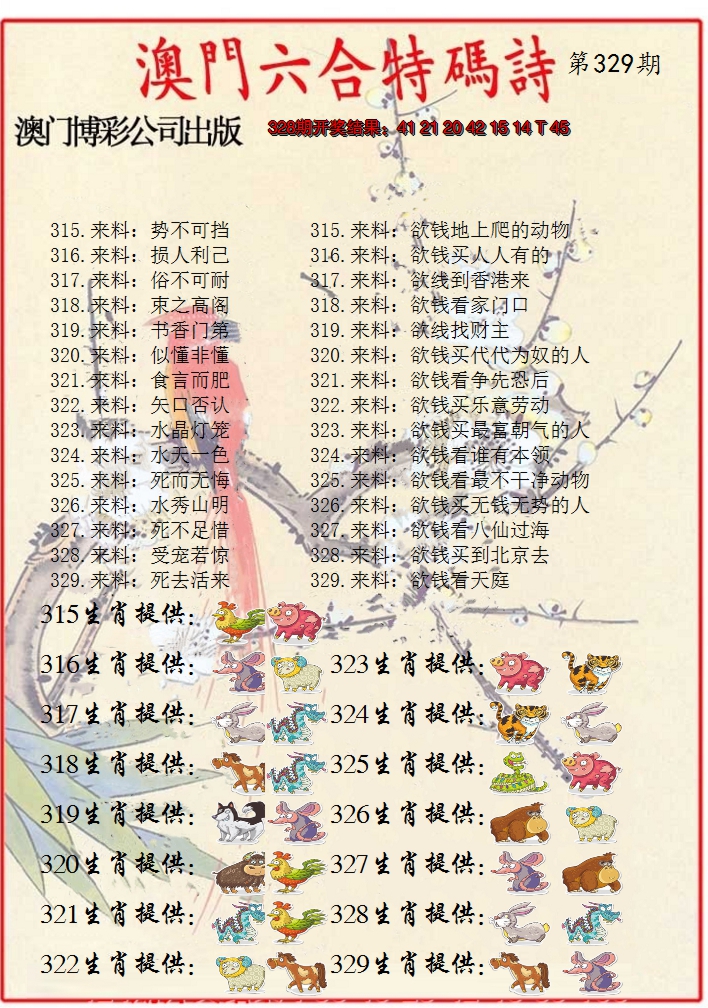 澳門六合特碼詩 第329期
澳门博彩公司出版 328期开奖结果：41 21 20 42 15 14 T 45
315.来料：势不可挡 315.来料：欲钱地上爬的动物
316.来料：损人利己 316.来料：欲钱买人人有的
317.来料：俗不可耐 317.来料：欲线到香港来
318.来料：束之高阁 318.来料：欲钱看家门口
319.来料：书香门第 319.来料：欲线找财主
320.来料：似懂非懂 320.来料：欲钱买代代为奴的人
321.来料：食言而肥 321.来料：欲钱看争先恐后
322.来料：矢口否认 322.来料：欲钱买乐意劳动
323.来料：水晶灯笼 323.来料：欲钱买最富朝气的人
324.来料：水天一色 324.来料：欲钱看谁有本领
325.来料：死而无悔 325.来料：欲钱看最不干净动物
326.来料：水秀山明 326.来料：欲钱买无钱无势的人
327.来料：死不足惜 327.来料：欲钱看八仙过海
328.来料：受宠若惊 328.来料：欲钱买到北京去
329.来料：死去活来 329.来料：欲钱看天庭
315生肖提供：
316生肖提供： 323生肖提供：
317生肖提供： 324生肖提供：
318生肖提供： 325生肖提供：
319生肖提供： 326生肖提供：
320生肖提供： 327生肖提供：
321生肖提供： 328生肖提供：
322生肖提供： 329生肖提供：